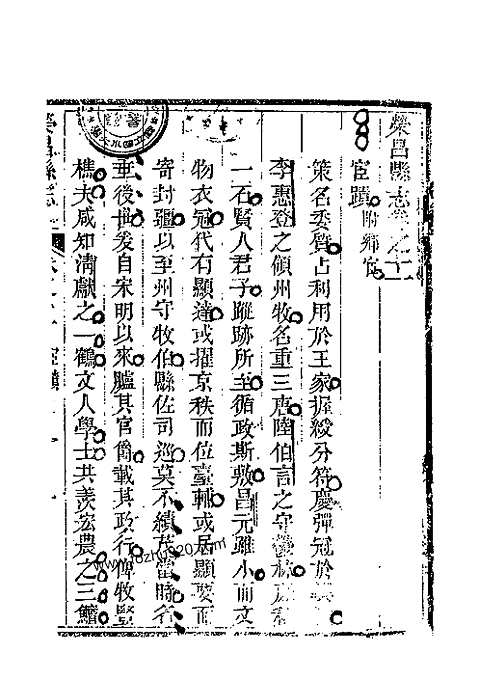 榮昌縣志卷之十二
宦蹟 附鄉宦
策名委質占利用於王家握綬分符慶彈冠於
李惠登之領州牧名重三唐陸伯言之守
一石賢人君子蹤跡所至循政斯敷昌元雖小而文
物衣冠代有顯達或擢京秩而位臺輔或居顯要而
寄封疆以至州守牧伯縣佐司巡莫不績茂當時名
垂後世爰自宋明以來臚其官閥載其政行俾牧豎
樵夫咸知清獻之一鶴文人學士共羨宏農之三鱣
榮昌縣志